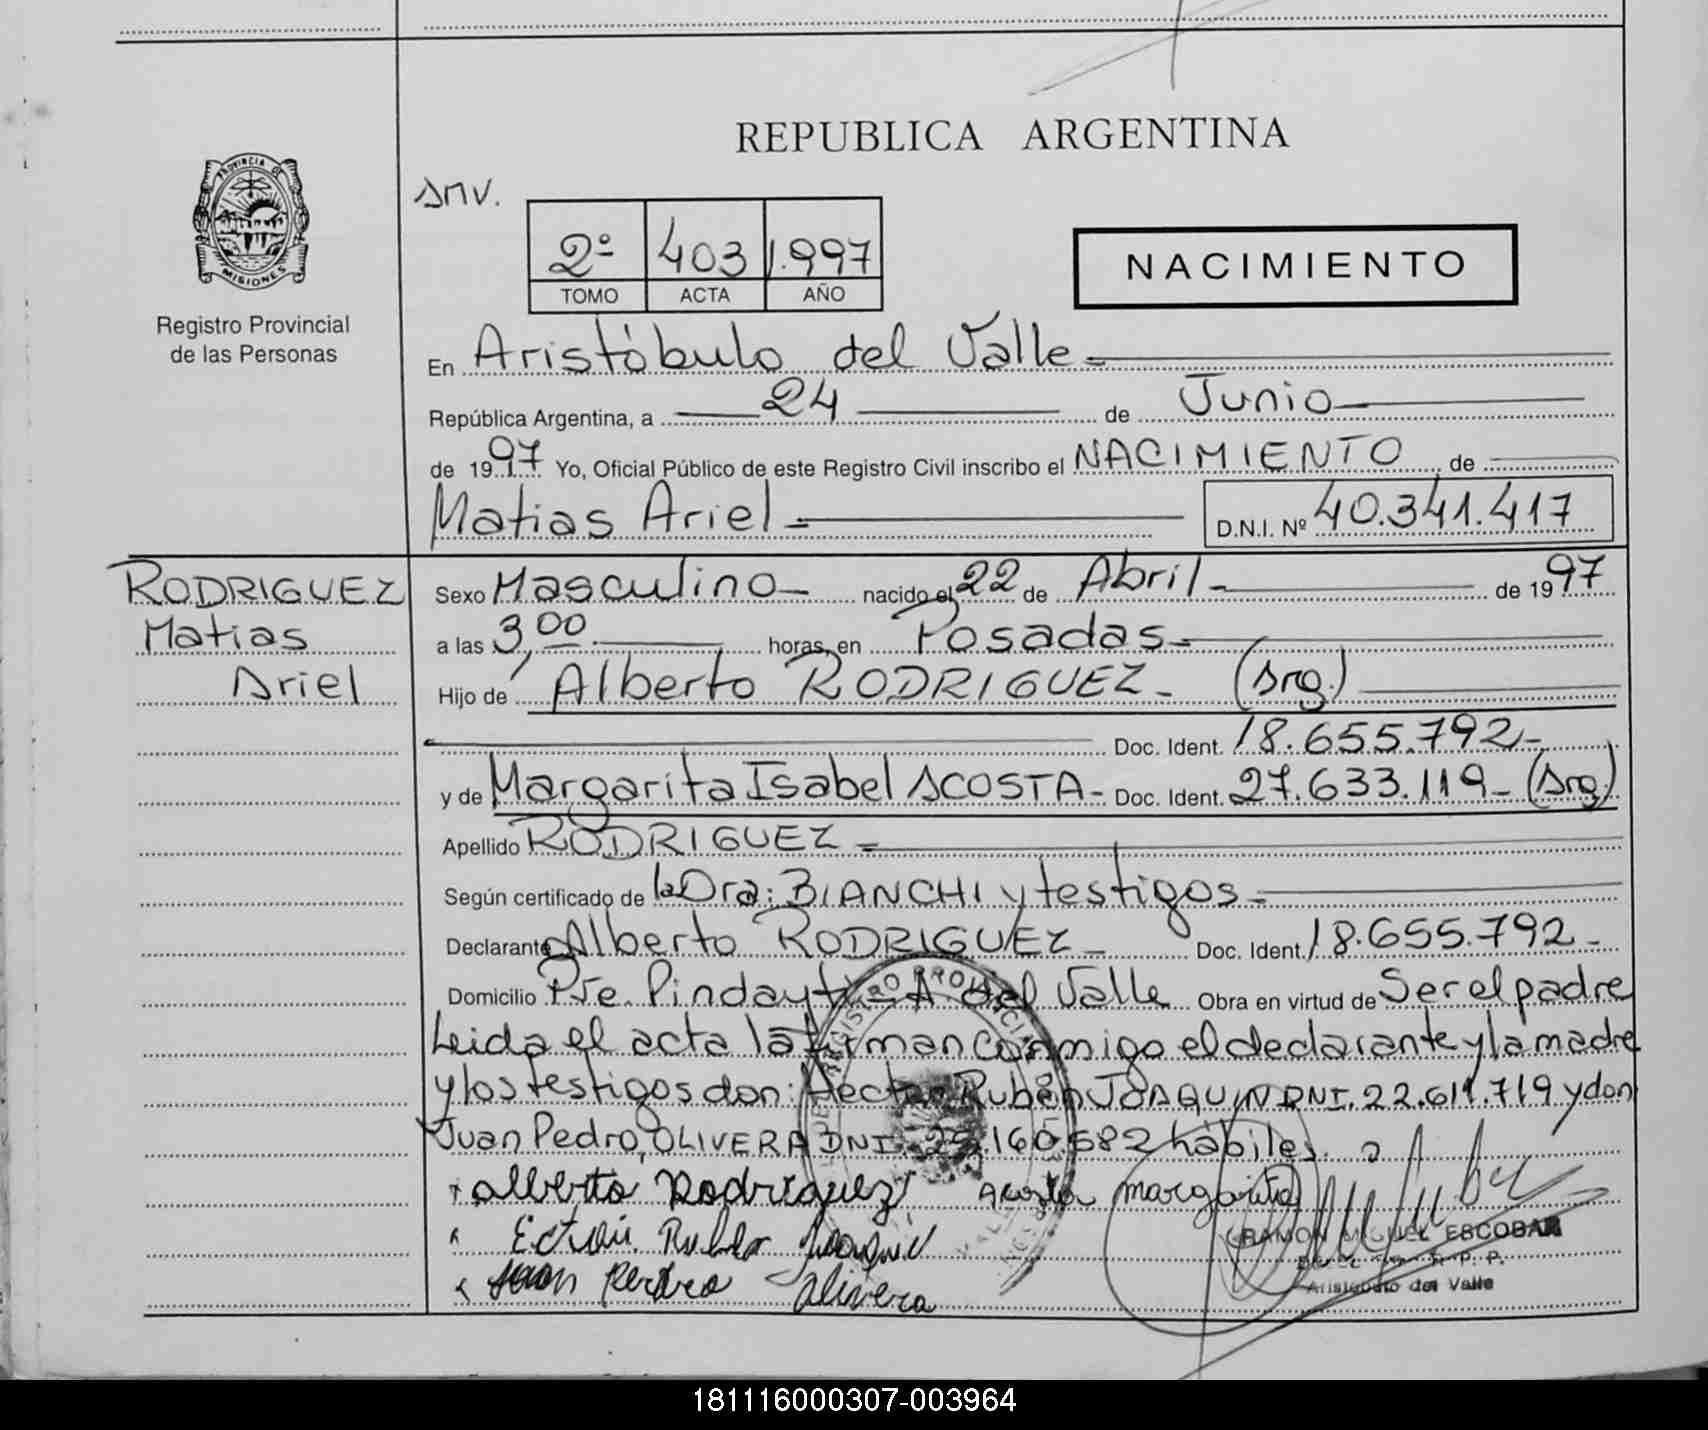 REPUBLICA ARGENTINA
PROVINCIA DE
MISIONES
Registro Provincial
de las Personas
2º 403 1.997
TOMO ACTA AÑO
NACIMIENTO
En Aristóbulo del Valle
República Argentina, a 24 de Junio
de 1997 Yo, Oficial Público de este Registro Civil inscribo el NACIMIENTO de
Matias Ariel
D.N.I. Nº 40.341.417
RODRIGUEZ
Matias
Ariel
Sexo Masculino nacido el 22 de Abril de 1997
a las 3,00 horas, en Posadas
Hijo de Alberto RODRIGUEZ (Arg.)
Doc. Ident. 18.655.792
y de Margarita Isabel ACOSTA Doc. Ident. 27.633.119 (Arg)
Apellido RODRIGUEZ
Según certificado de la Dra: BIANCHI y testigos
Declarante Alberto RODRIGUEZ Doc. Ident. 18.655.792
Domicilio Pje. Pindayti - A° del Valle Obra en virtud de Ser el padre
Leida el acta la firman conmigo el declarante y la madre
y los testigos don: Hector Rubén JOAQUIN DNI. 22.611.719 y don
Juan Pedro, OLIVERA DNI. 25.160.582 hábiles.
Alberto Rodriguez Acosta margarita
Juan Pedro Olivera
RAMON MIGUEL ESCOBAR
R. P. P.
Aristobulo del Valle
181116000307-003964